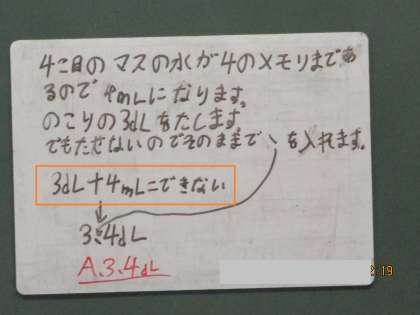 4こ目のマスの水が4のメモリまであ
るので4mLになります。
のこりの3dLをたします。
でもたせないのでそのままで、を入れます。
3dL+4mL=できない
3.4dL
A.3.4dL
2.19